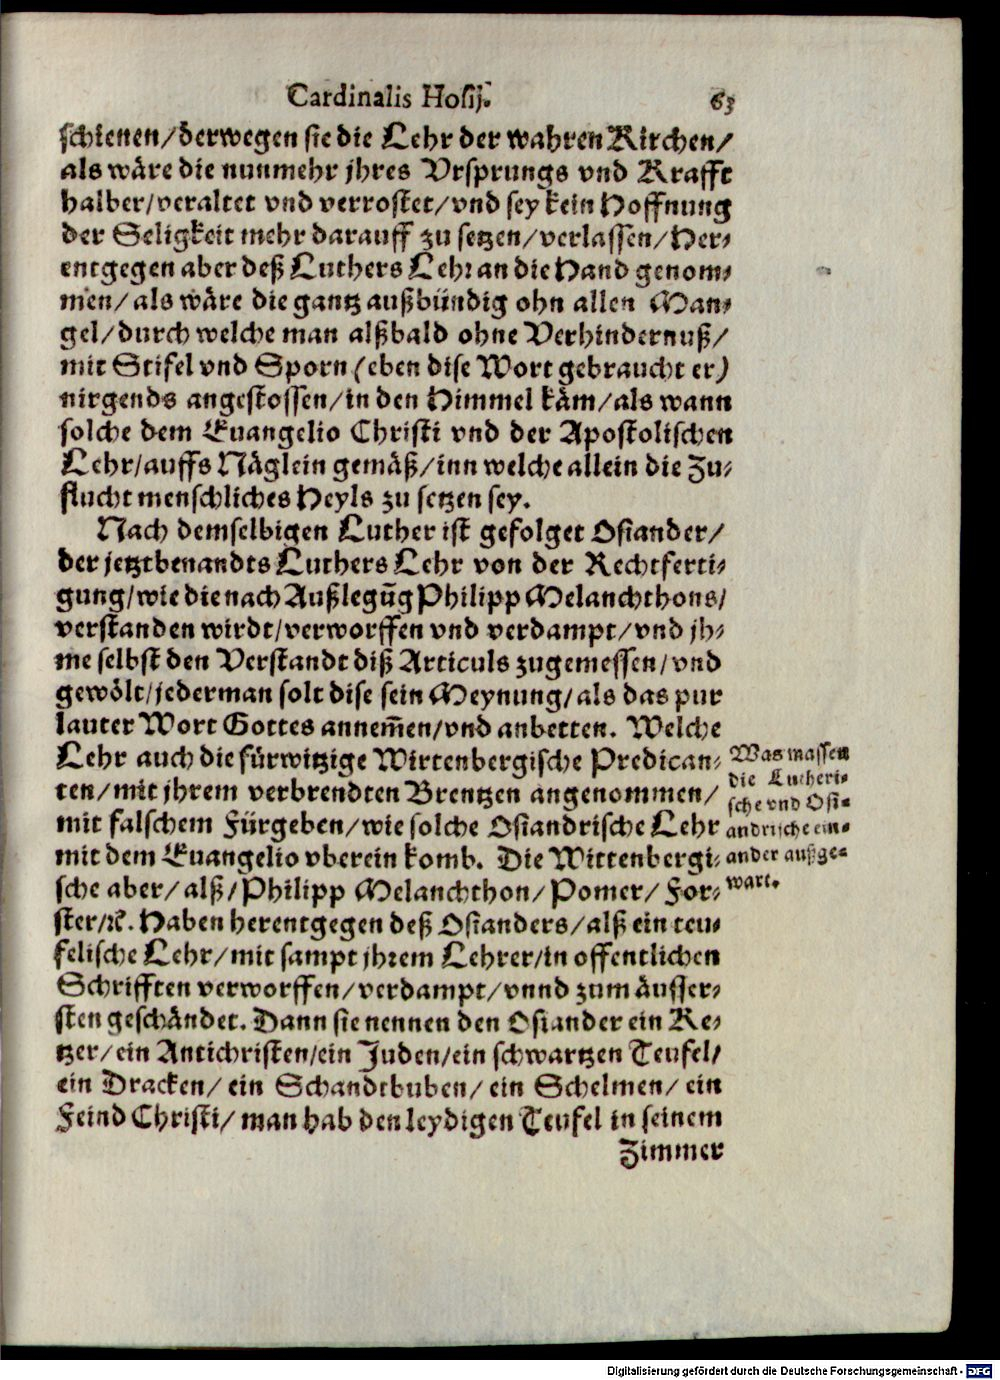 Cardinalis Hosij. 63
schienen/derwegen sie die Lehr der wahren Kirchen/
als wäre die nunmehr jhres Vrsprungs vnd Krafft
halber/veraltet vnd verrostet/vnd sey kein Hoffnung
der Seligkeit mehr darauff zu setzen/verlassen/Her-
entgegen aber deß Luthers Lehr an die Hand genom-
men/als wäre die gantz außbündig ohn allen Man-
gel/durch welche man alßbald ohne Verhindernuß/
mit Stifel vnd Sporn (eben dise Wort gebraucht er)
nirgends angestossen/in den Himmel käm/als wann
solche dem Euangelio Christi vnd der Apostolischen
Lehr/auffs Näglein gemäß/inn welche allein die Zu-
flucht menschliches Heyls zu setzen sey.
Nach demselbigen Luther ist gefolget Osiander/
der jetztbenandts Luthers Lehr von der Rechtferti-
gung/wie die nach Außlegũg Philipp Melanchthons/
verstanden wirdt/verworffen vnd verdampt/vnd jh-
me selbst den Verstandt diß Articuls zugemessen/vnd
gewölt/jederman solt dise sein Meynung/als das pur
lauter Wort Gottes annem̃en/vnd anbetten. Welche
Lehr auch die fürwitzige Wirtenbergische Predican-
ten/mit jhrem verbrendten Brentzen angenommen/
mit falschem Fürgeben/wie solche Osiandrische Lehr
mit dem Euangelio vberein komb. Die Wittenbergi-
sche aber/alß/Philipp Melanchthon/Pomer/For-
ster/ꝛc. Haben herentgegen deß Osianders/alß ein teu-
felische Lehr/mit sampt jhrem Lehrer/in offentlichen
Schrifften verworffen/verdampt/vnnd zum äusser-
sten geschändet. Dann sie nennen den Osiander ein Ke-
tzer/ein Antichristen/ein Juden/ein schwartzen Teufel/
ein Dracken/ein Schandtbuben/ein Schelmen/ein
Feind Christi/man hab den leydigen Teufel in seinem
Zimmer
Was massen
die Lutheri-
sche vnd Osi-
andrische ein-
ander außge-
wart.
Digitalisierung gefördert durch die Deutsche Forschungsgemeinschaft - DFG